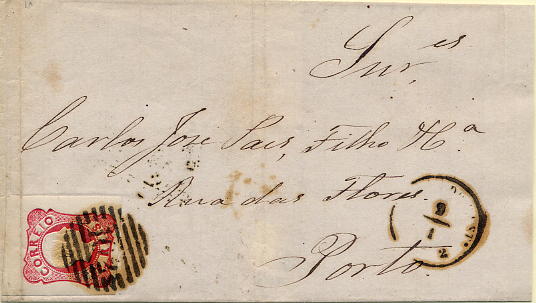 Snr.es
Carlos Jose Paes, Filho & Ca.
Rua das Flores.
Porto.
CORREIO
9
1
2